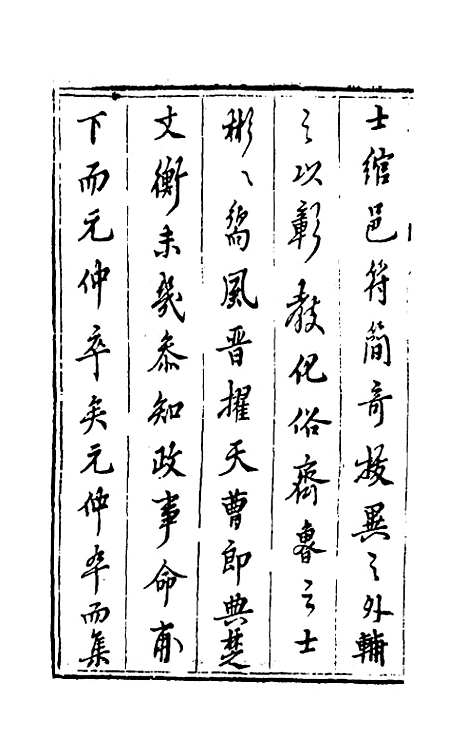 士綰邑符簡奇拔異之外輔
之以彰教化俗齊魯之士
彬彬嚮風晋擢天曹郎典楚
文衡未幾叅知政事命甫
下而元仲卒矣元仲卒而集